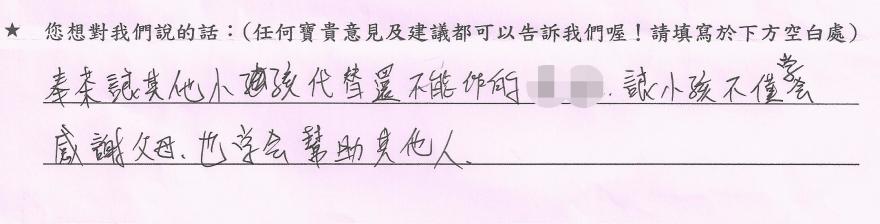 ★ 您想對我們說的話：（任何寶貴意見及建議都可以告訴我們喔！請填寫於下方空白處）
奉茶讓其他小孩代替還不能作的 . 讓小孩不僅学会
感謝父母、也学会幫助其他人.